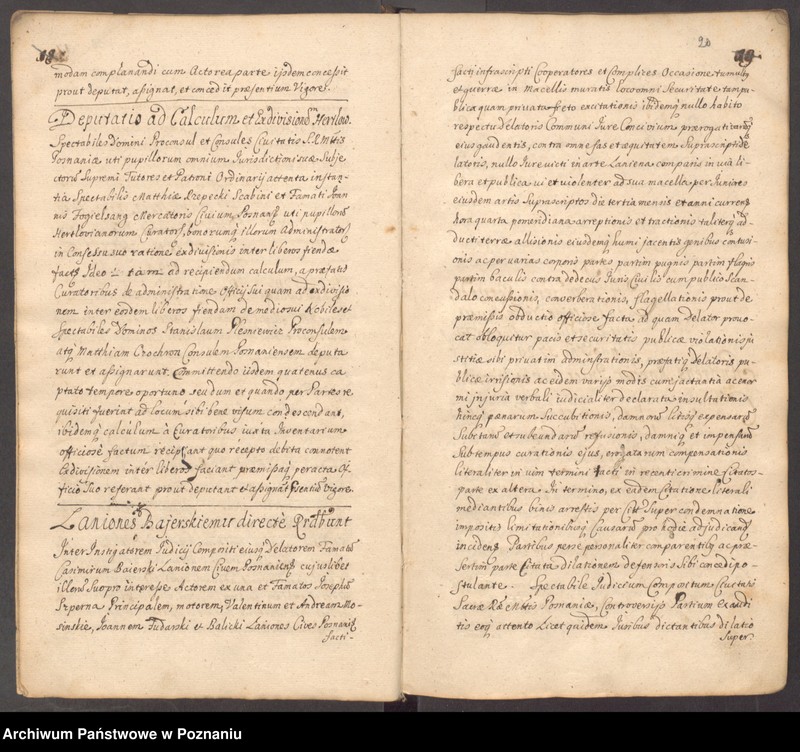 modam complanandi cum Actorea parte ijsdem concessit
prout deputat, assignat, et concedit præsentium Vigore.
Deputatio ad Calculum et Exdivisionem Harlow.
Spectabiles Domini Proconsul et Consules Civitatis S. R. Mttis
Posnaniæ uti pupillorum omnium Jurisdictioni suæ Subje-
ctorum Supremi Tutores et Patroni Ordinarij attenta instan-
tia Spectabilis Matthiæ Rzepecki Scabini et Famati Joan-
nis Fogielsang Mercatoris Civium Posnanq uti pupillorum
Hertlovianorum Curatorq, bonorumq illorum Administratorq
in Consessu suo ratione exdivisionis inter liberos fiendæ
factq Ideo tam ad recipiendum calculum, a præfatis
Curatoribus de administratione Officij Sui quam ad exdivisio-
nem inter eosdem liberos fiendam de medio sui Nobiles et
Spectabiles Dominos Stanislaum Plesniewicz Proconsulem
atq Matthiam Crochron Consulem Posnaniensem deputa-
runt et assignarunt. Committendo iisdem quatenus ca-
ptato tempore oportuno seu dum et quando per Partes re-
quisiti fuerint ad locum sibi bene visum condescendant,
ibidemq calculum à Curatoribus iuxta Inventarium
officiose factum recipiant quo recepto debita connotent
Exdivisionem inter liberos faciant præmissaq peracta Of-
ficio Suo referant prout deputant et assignant Præsentium vigore.
Laniones Bajerskiemu directè Rndbunt
Inter Instigatorem Judicij Compositi eiusq Delatorem Famatum
Casimirum Baierski Lanionem Civem Posnaniensem cujuslibet
illorum suo pro interesse Actorem ex una et Famatos Josephum
Szperna Principalem, motorem, Valentinum et Andream Mo-
sinskie, Joannem Tudarski et Balicki Laniones Cives Posnanq
facti-
20
facti infrascripti Cooperatores et Complices Occasione tumultq
et guerræ in Macellis muratis loco omni Securitate tam pu-
blica quam privata sueto excitationis ibidemq nullo habito
respectu Delatoris Communi Jure Concivium prærogativarumq
eius gaudentis, contra omne fas et æquitatem Suprascripti De-
latoris, nullo Jure victi in arte Laniena comparis in via li-
bera et publica vi et violenter ad sua macella per Juniores
eiusdem artis Suprascriptos die tertia mensis et anni currenq
hora quarta pomeridiana arreptionis et tractionis taliterq ad-
ducti terræ allisionis eiusdemq humi jacentis genibus contusi-
onis ac per varias corporis partes partim pugnis partim flagris
partim baculis contra dedecus Juris Civilis cum publico Scan-
dalo concussionis, converberationis, flagellationis prout de
præmissis obductio officiose facta ad quam Delator provo-
cat obloquitur pacis et securitatis publicæ violationis ju-
stitiæ sibi privatim administrationis, præfatiq Delatoris pu-
blicæ irrisionis ac eidem varijs modis cum jactantia ac enor-
mi injuria verbali iudicialiter declaranda insultationis
hincq pænarum Succubitionis, damnorum litisq expensarum
Subctarum et subeundarum refusionis, damniq et impensarum
Sub tempus curationis ejus, erogatarum compensationis
literaliter in vim termini tacti in recenti crimine Citatos-
parte ex altera. In termino, ex eadem Citatione literali
mediantibus binis arrestis per Citt Super condemnatione
impositis limitationibusq Causarum pro hodie adjudicandq
incidenq Partibus per se personaliter comparentibq ac præ-
sertim parte Citata dilationem defensoris sibi concedi po-
stulante. Spectabile Judicium Compositum Civitatis
Sacræ Ræ Mttis Posnaniæ, Controversijs Partium exaudi-
tis eisq attento Licet quidem Juribus dictantibus dilatio
Super-
Archiwum Państwowe w Poznaniu